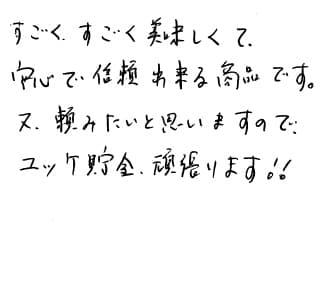 すごく、すごく美味しくて、
安心で信頼出来る商品です。
又、頼みたいと思いますので、
ユッケ貯金、頑張ります!!